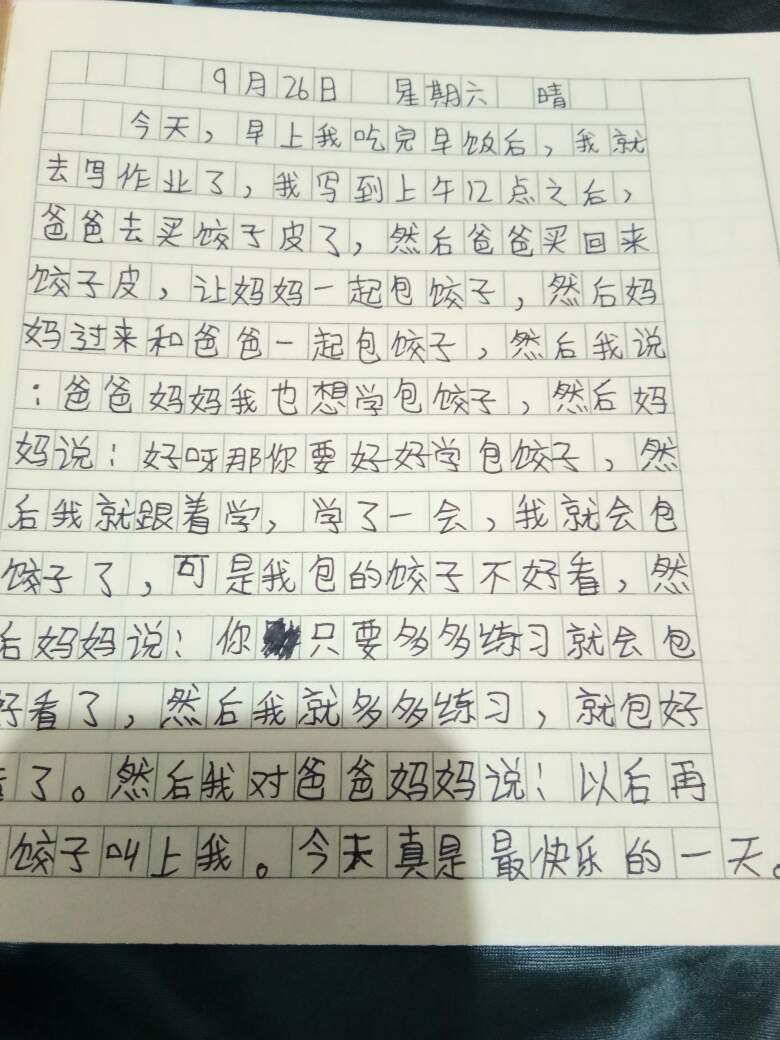 9月26日 星期六 晴
今天，早上我吃完早饭后，我就
去写作业了，我写到上午12点之后，
爸爸去买饺子皮了，然后爸爸买回来
饺子皮，让妈妈一起包饺子，然后妈
妈过来和爸爸一起包饺子，然后我说
：爸爸妈妈我也想学包饺子，然后妈
妈说：好呀那你要好好学包饺子，然
后我就跟着学，学了一会，我就会包
饺子了，可是我包的饺子不好看，然
后妈妈说：你只要多多练习就会包
好看了，然后我就多多练习，就包好
了。然后我对爸爸妈妈说：以后再
饺子叫上我。今天真是最快乐的一天。